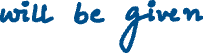 will be given